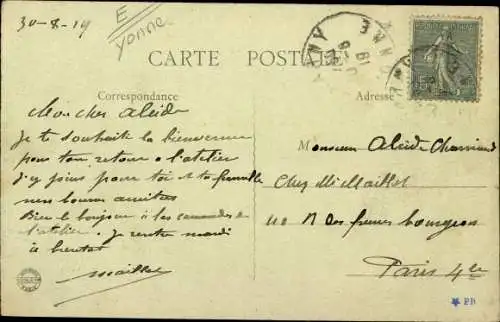 30-8-19
E
Yonne
CARTE POSTALE
Correspondance
Adresse
Mon cher Alcide
Je te souhaite la bienvenue
pour ton retour a l'atelier
J'y joins pour toi et ta famille
mes bonnes amities
Bien le bonjour à les camarades de
l'atelier. Je rentre mardi
à bientot
Maillet
Monsieur Alcide
Chez Mr Maillet
40 R des francs bourgeois
Paris 4e
PB